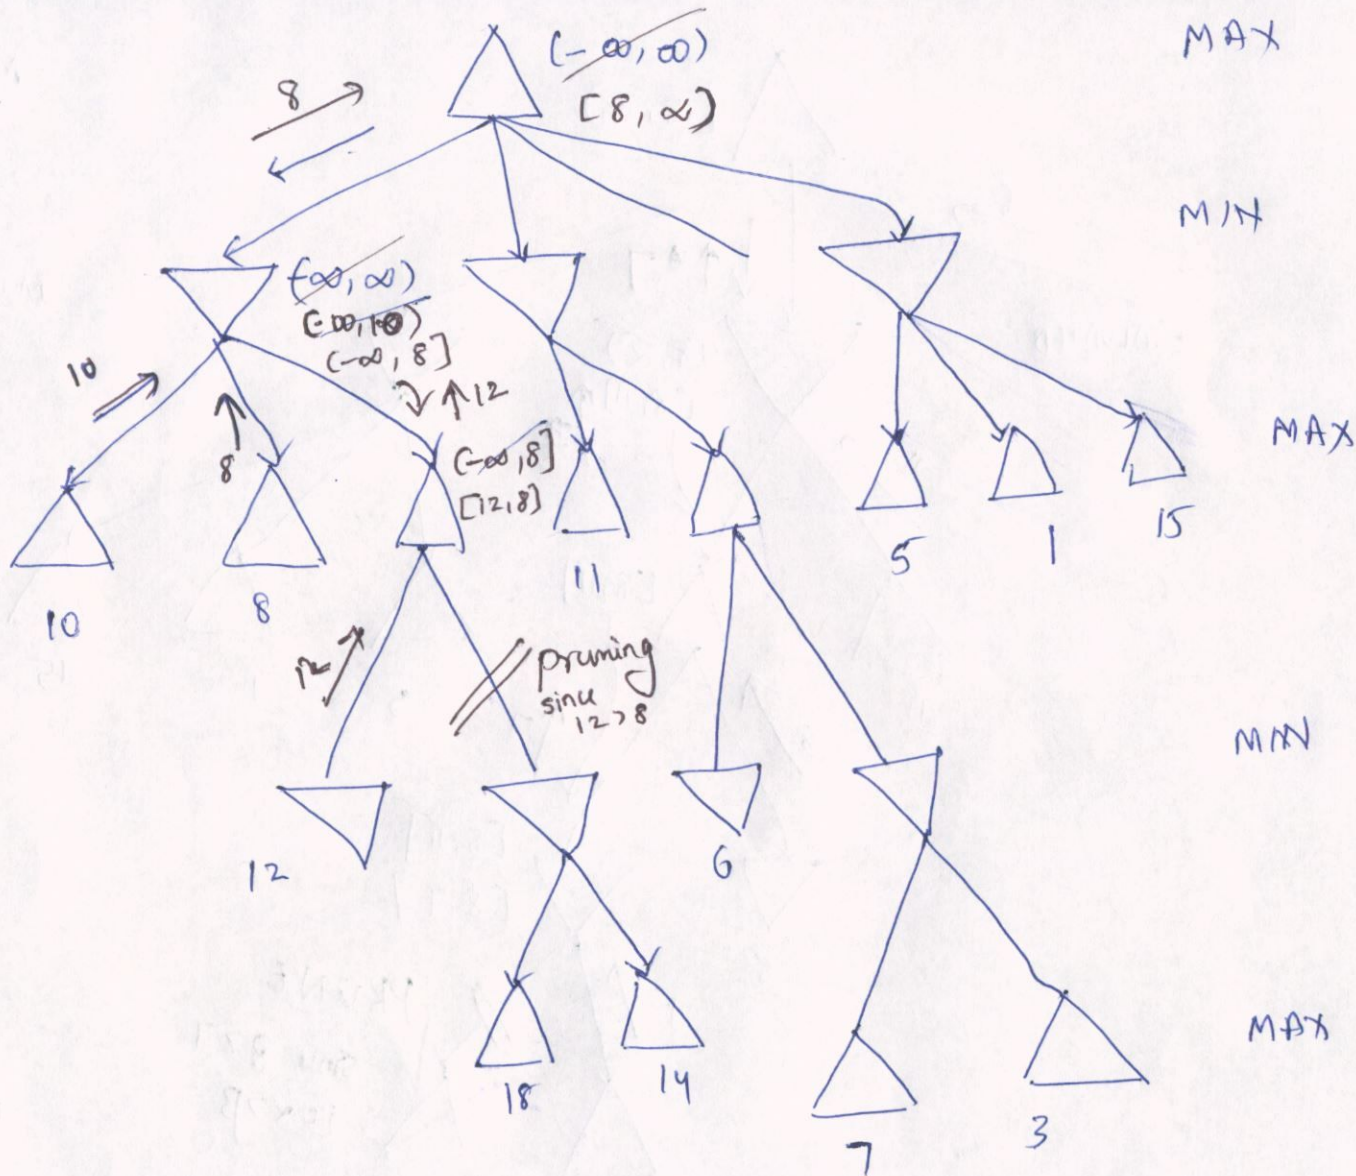 (-∞, ∞)
MAX
8
[8, ∞)
MIN
(-∞, ∞)
(-∞, 10)
(-∞, 8]
10
12
MAX
8
(-∞, 8]
[12, 8]
10
8
11
5
1
15
12
pruning
since
12 > 8
MIN
12
6
MAX
18
14
7
3